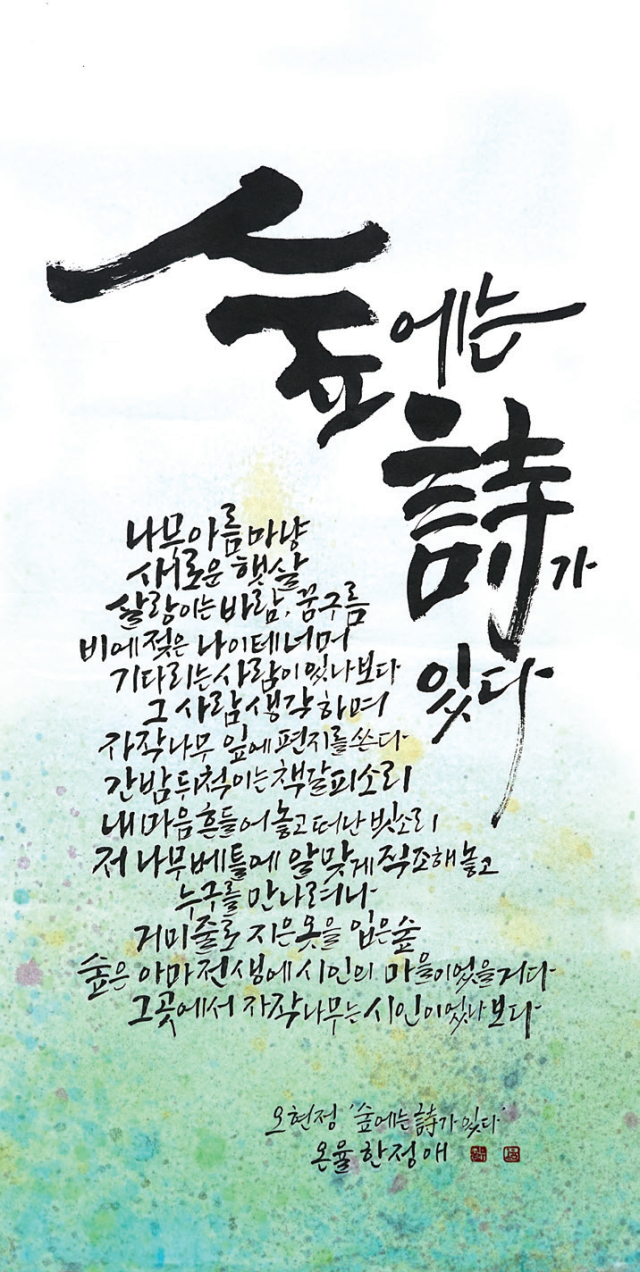 숲에는
詩가
있다
나무아름마냥
새로운 햇살
살랑이는 바람, 꿈구름
비에 젖은 나이테 너머
기다리는 사람이 있나보다
그 사람 생각하며
자작나무 잎에 편지를 쓴다
간밤 뒤척이는 책갈피소리
내 마음 흔들어 놓고 떠난 빗소리
저 나무베틀에 알맞게 직조해 놓고
누구를 만나려나
거미줄로 지은 옷을 입은 숲
숲은 아마 전생에 시인의 마을이었을거다
그곳에서 자작나무는 시인이었나보다
오현정 '숲에는 詩가 있다'
온율 한정애